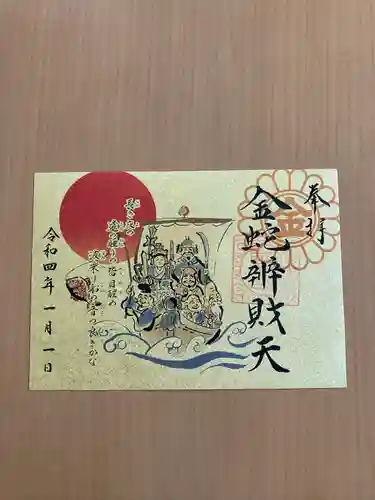 奉拝
金蛇辨財天
長き夜の
遠の眠りの
皆目醒め
波乗り舟の
音の良きかな
令和四年一月一日